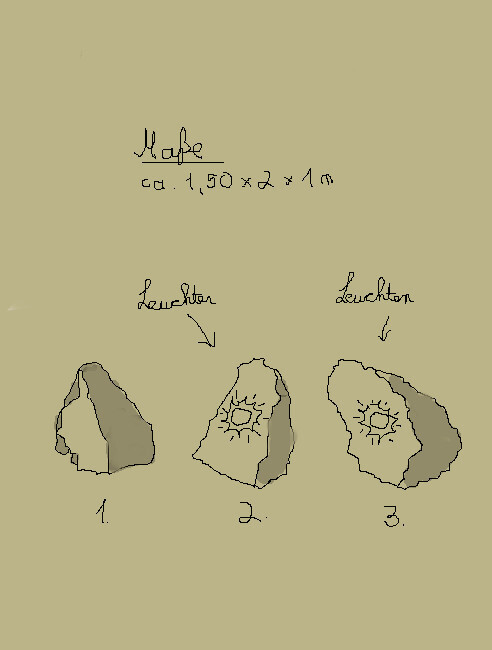 Maße
ca. 1,50 x 2 x 1 m
Leuchten
Leuchten
1.
2.
3.